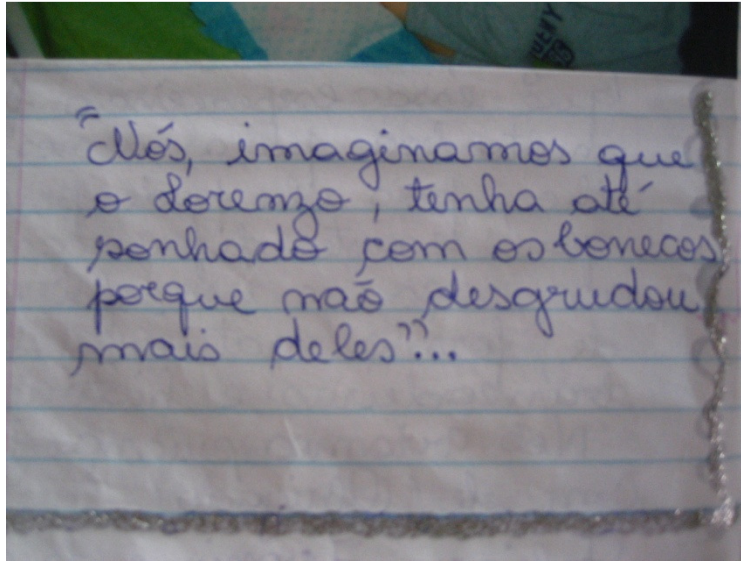 "Nós, imaginamos que
o Lorenzo, tenha até
sonhado com os bonecos,
porque não desgrudou
mais deles"...